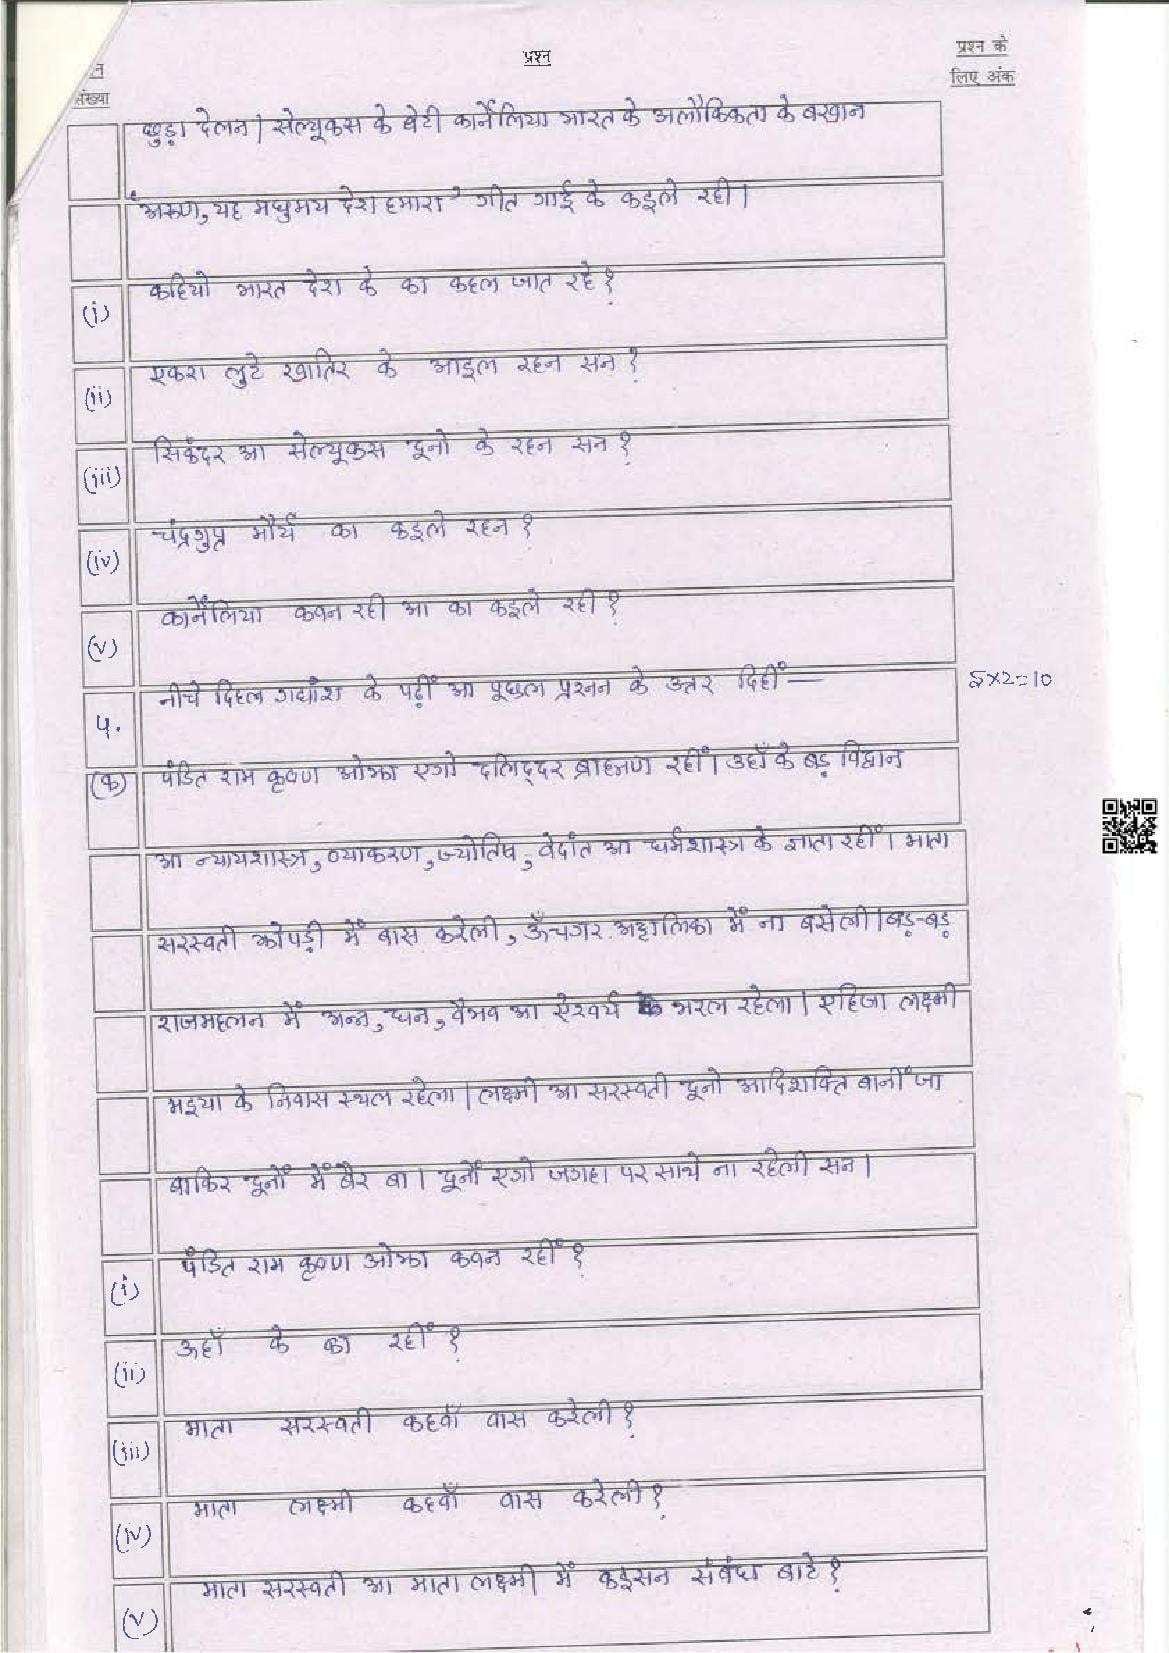 प्रश्न
प्रश्न के
लिए अंक
संख्या
छुड़ा देलन। सेल्यूकस के बेटी कार्नेलिया भारत के अलौकिकता के बखान
"अरुण, यह मधुमय देश हमारा" गीत गाई के कइले रही।
(i) कहियो भारत देश के का कहल जात रहे?
(ii) एकरा लुटे खातिर के आइल रहन सन?
(iii) सिकंदर आ सेल्यूकस दूनो के रहन सन?
(iv) चंद्रगुप्त मौर्य का कइले रहन?
(v) कार्नेलिया कवन रही आ का कइले रही?
५. नीचे दिहल गद्यांश के पढ़ीं आ पूछल प्रश्नन के उत्तर दिहीं— 5×2=10
(क) पंडित राम कृष्ण ओझा एगो दलिद्दर ब्राह्मण रहीं। उहाँ के बड़ विद्वान
आ न्यायशास्त्र, व्याकरण, ज्योतिष, वेदांत आ धर्मशास्त्र के ज्ञाता रहीं। माता
सरस्वती झोपड़ी में बास करेली, ऊँचगर अट्टालिका में ना बसेली। बड़-बड़
राजमहलन में अन्न, धन, वैभव आ ऐश्वर्य के भरल रहेला। एहिजा लक्ष्मी
मइया के निवास स्थल रहेला। लक्ष्मी आ सरस्वती दूनो आदिशक्ति बानीं जा
बाकिर दूनों में बैर बा। दूनों एगो जगहा पर साथे ना रहेली सन।
(i) पंडित राम कृष्ण ओझा कवन रहीं?
(ii) ऊहाँ के का रहीं?
(iii) माता सरस्वती कहवाँ वास करेली?
(iv) माता लक्ष्मी कहवाँ वास करेली?
(v) माता सरस्वती आ माता लक्ष्मी में कइसन संबंध बाटे?